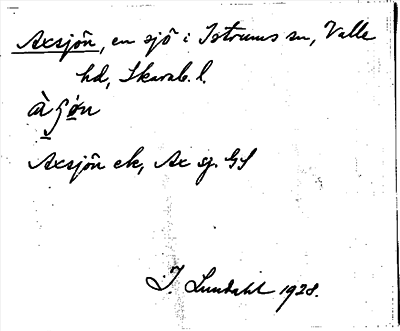 Axsjön, en sjö i Istrums sn, Valle
hd, Skarab. l.
Axsjön ek, Ax sg. GS
I. Lundahl 1928.